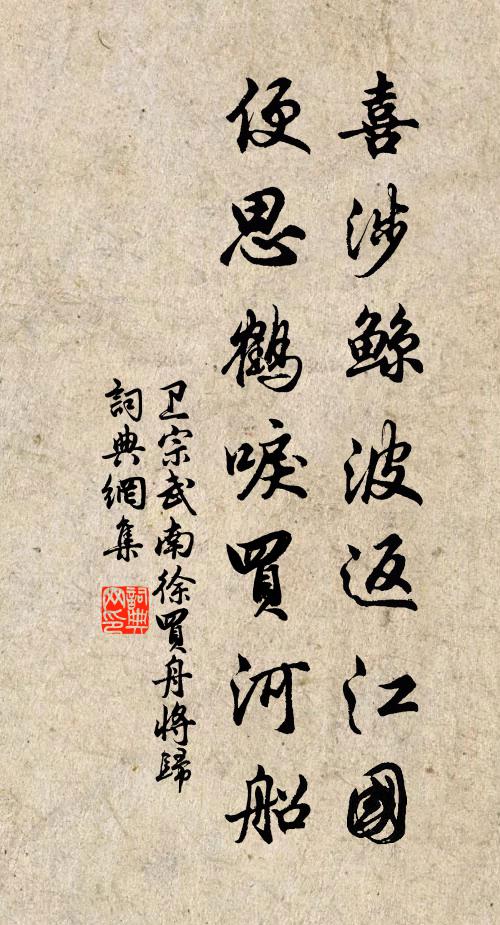 喜涉鲸波返江國
便思鶴唳買河船
卫宗武南徐買舟將歸
詞典網集
詞典网印